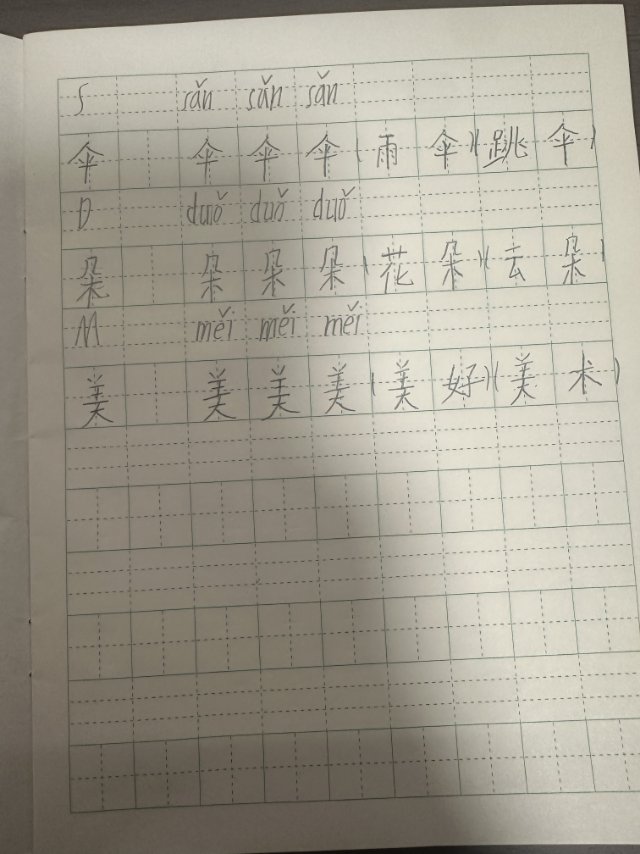 S sǎn sǎn sǎn
伞 伞 伞 伞 (雨 伞)(跳 伞)
D duǒ duǒ duǒ
朵 朵 朵 朵 (花 朵)(云 朵)
M měi měi měi
美 美 美 美 (美 好)(美 术)